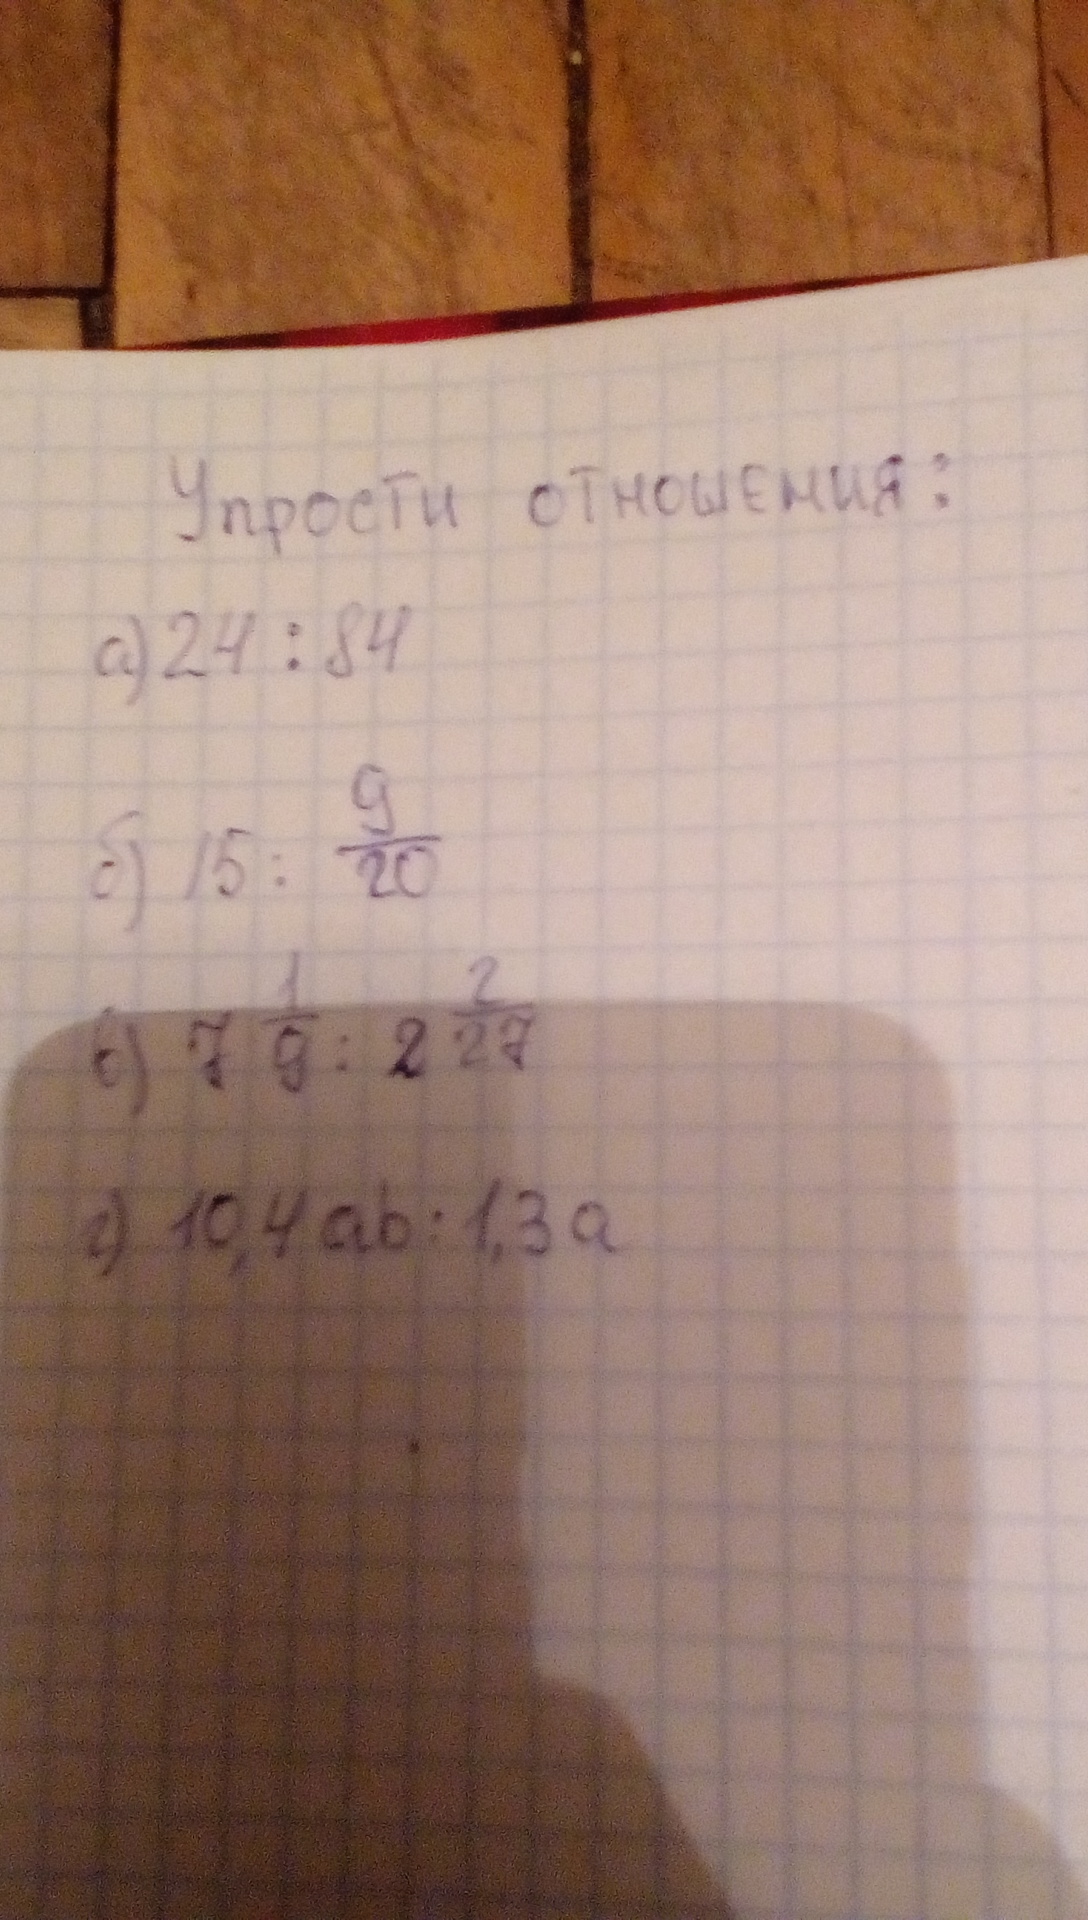 Упрости отношения:
а) 24 : 84
б) 15 : 9/20
в) 7 1/9 : 2 2/27
г) 10,4ab : 1,3a